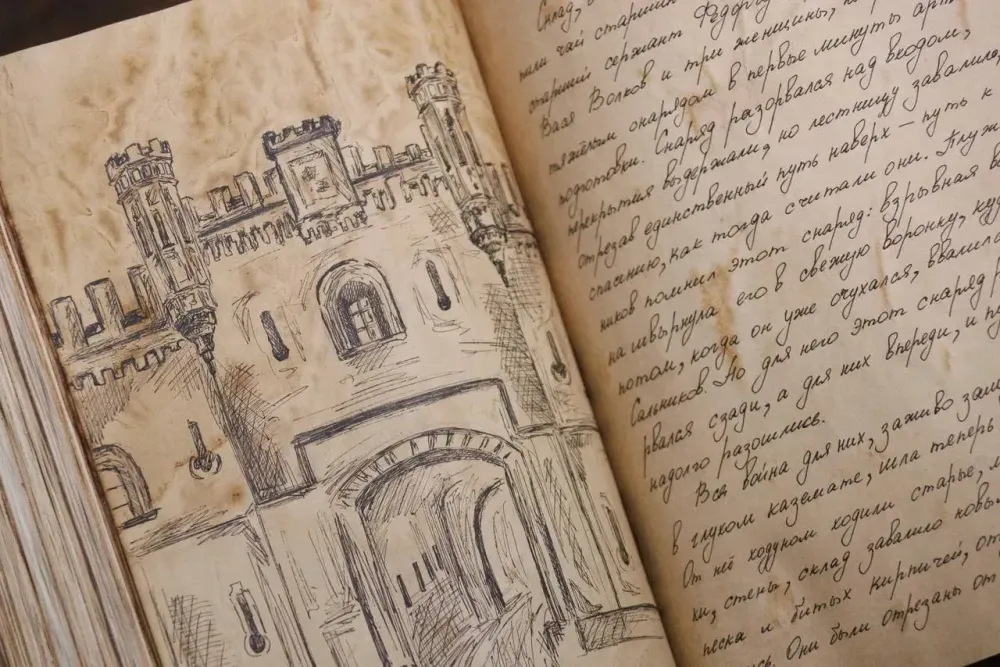 Склад,
пили чай старшин
старший сержант Федорчу
Вася Волков и три женщины,
тяжёлым снарядом в первые минуты арт
подготовки. Снаряд разорвался над входом,
перекрытия выдержали, но лестницу завалило,
отрезав единственный путь наверх — путь к
спасению, как тогда считали они. Плуж
ников помнил этот снаряд: взрывная во
на швырнула его в свежую воронку, куд
потом, когда он уже очухался, ввалил
Сальников. Но для него этот снаряд
рвался сзади, а для них впереди, и пу
надолго разошлись.
Вся война для них, заживо зам
в глухом каземате, шла теперь
От неё ходуном ходили старые,
ки, стены, склад завалило новы
песка и битых кирпичей, от
сь. Они были отрезаны от